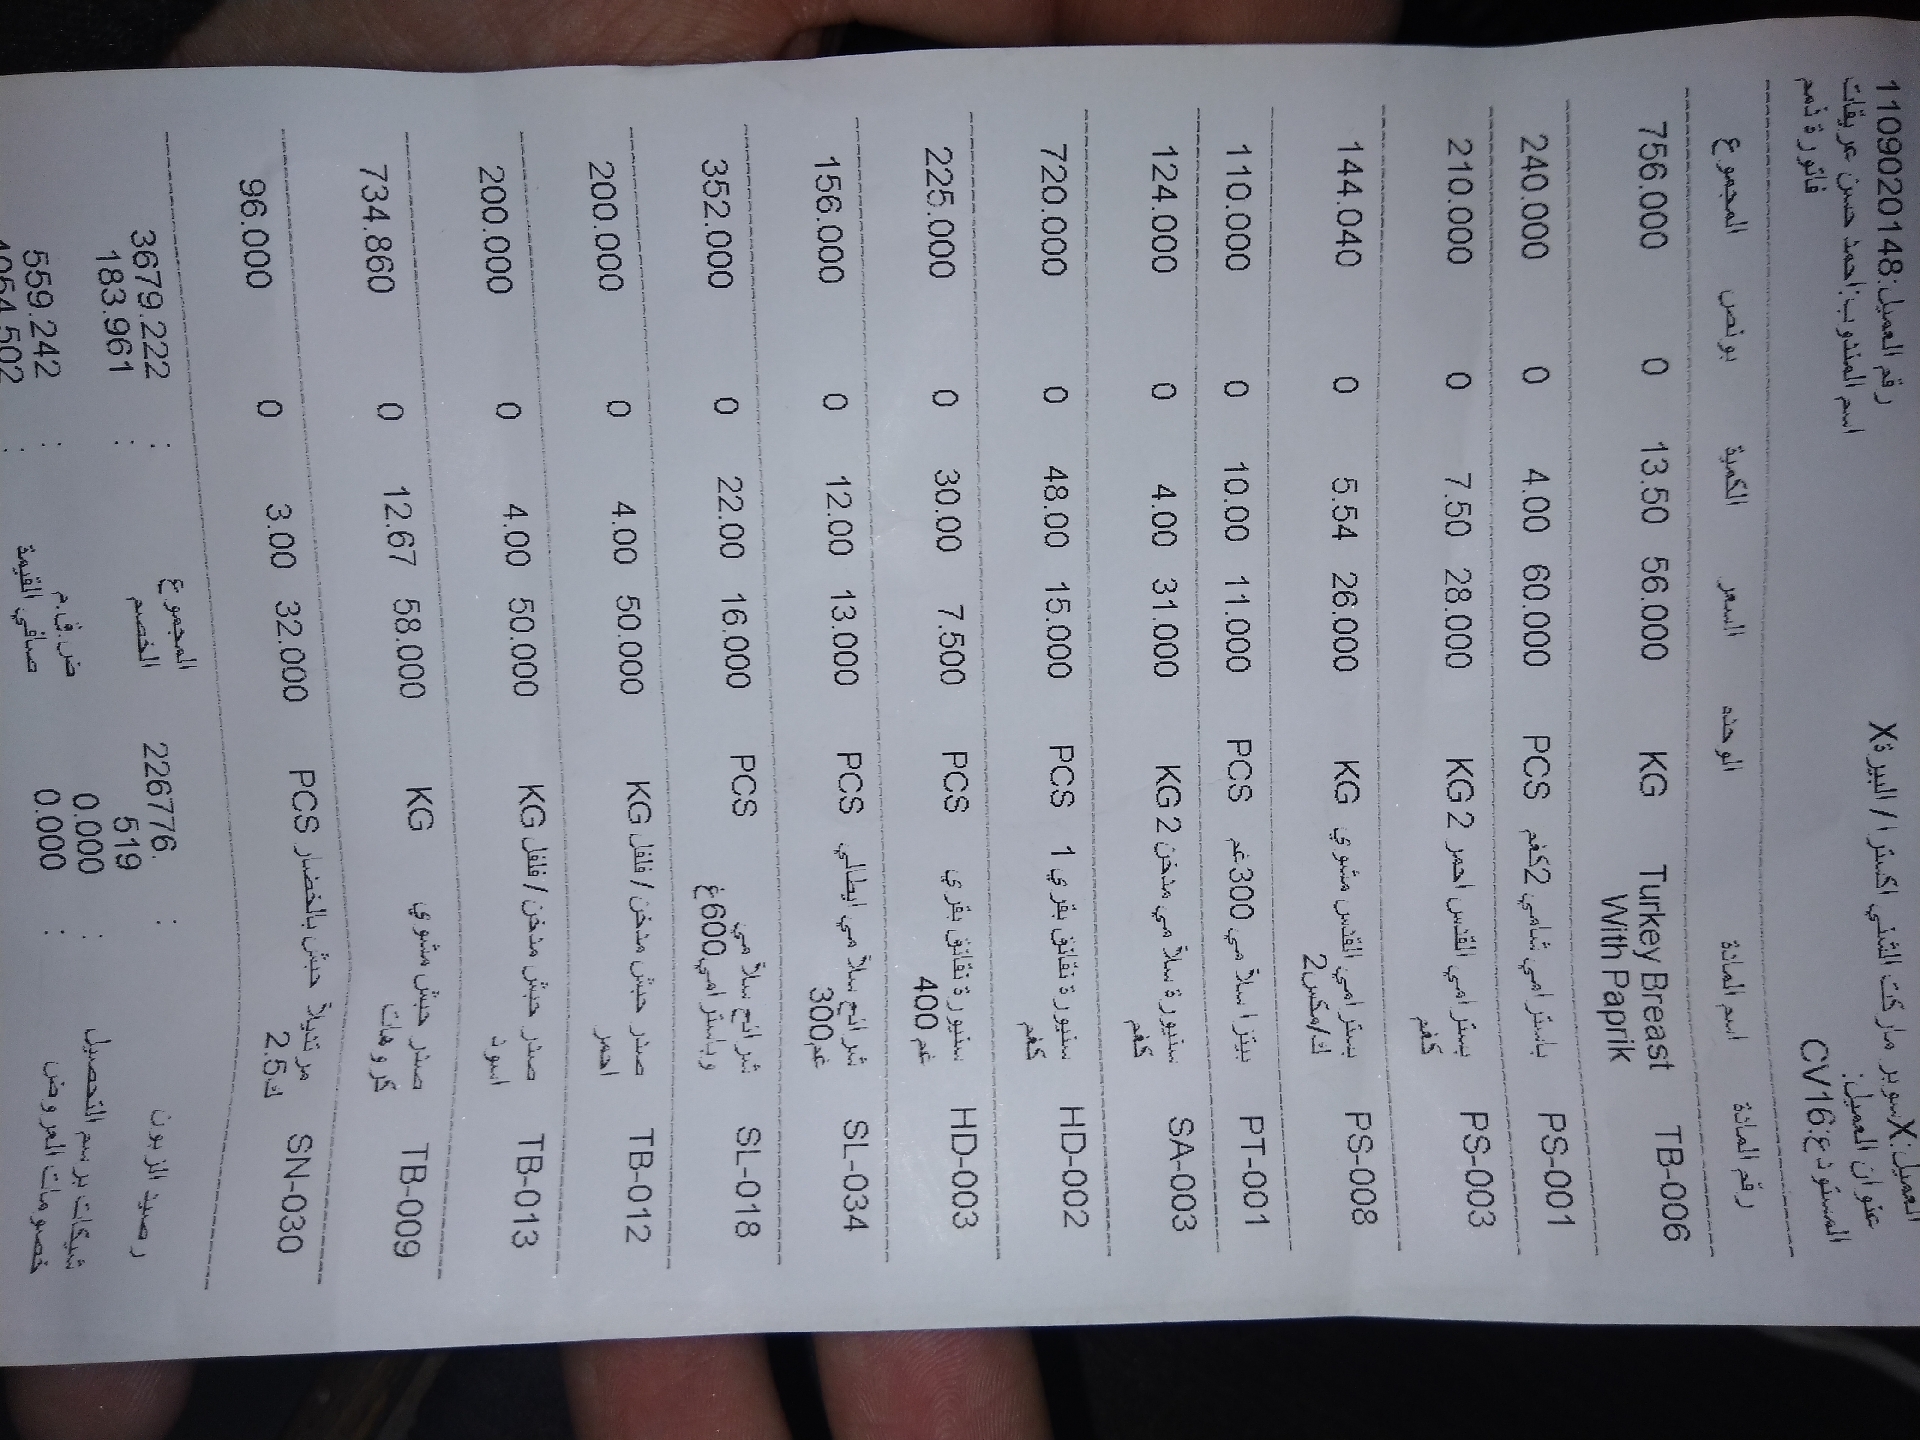 العميل:Xسوبر ماركت الشني اكسترا/البيرةX
رقم العميل:1109020148
عنوان العميل:
اسم المندوب:احمد حسن عريقات
المستودع:CV16
فاتورة ذمم
رقم المادة اسم المادة الوحده السعر الكمية بونص المجموع
TB-006 Turkey Breast KG 56.000 13.50 0 756.000
With Paprik
PS-001 باسترامي شامي 2كغم PCS 60.000 4.00 0 240.000
PS-003 بسترامي القدس احمر 2 KG 28.000 7.50 0 210.000
كغم
PS-008 بسترامي القدس مشوي KG 26.000 5.54 0 144.040
ك/مكس2
PT-001 بيتزا سلامي 300غم PCS 11.000 10.00 0 110.000
SA-003 سنيورة سلامي مدخن 2 KG 31.000 4.00 0 124.000
كغم
HD-002 سنيورة نقانق بقري 1 PCS 15.000 48.00 0 720.000
كغم
HD-003 سنيورة نقانق بقري PCS 7.500 30.00 0 225.000
400 غم
SL-034 شرائح سلامي ايطالي PCS 13.000 12.00 0 156.000
300غم
SL-018 شرائح سلامي PCS 16.000 22.00 0 352.000
وباسترامي600غ
TB-012 صدر حبش مدخن/فلفل KG 50.000 4.00 0 200.000
احمر
TB-013 صدر حبش مدخن/فلفل KG 50.000 4.00 0 200.000
اسود
TB-009 صدر حبش مشوي KG 58.000 12.67 0 734.860
كروهات
SN-030 مرتديلا حبش بالخضار PCS 32.000 3.00 0 96.000
2.5ك
المجموع : 3679.222
رصيد الزبون : 226776.
الخصم : 183.961
519
شيكات برسم التحصيل : 0.000
ض.ق.م : 559.242
خصومات العروض : 0.000
صافي القيمة : 4054.502